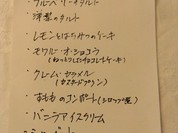 ・ブルーベリーのタルト
・洋梨のタルト
・レモンとはちみつのケーキ
・モワルー・オ・ショコラ
(ねっとりしたチョコレートケーキ)
・クレーム・キャラメル
(カスタードプリン)
・すもものコンポート(シロップ煮)
・バニラアイスクリーム